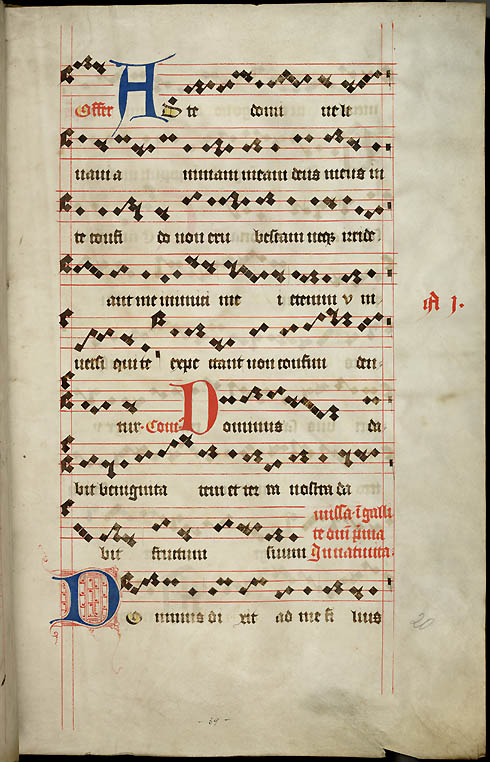 Offer AD te domi ne le
uaui a nimam meam deus meus in
te confi do non eru bescam neqz irride
ant me inimici me i etenim v ni
uersi qui te expe ctant non confun den
tur. Com Dominus da
bit benignita tem et ter ra nostra da
bit fructum suum
missa ī galli
te dn̄i pͥma
In natiuita
DOminus di xit ad me fi lius
A j.
20
- 39 -